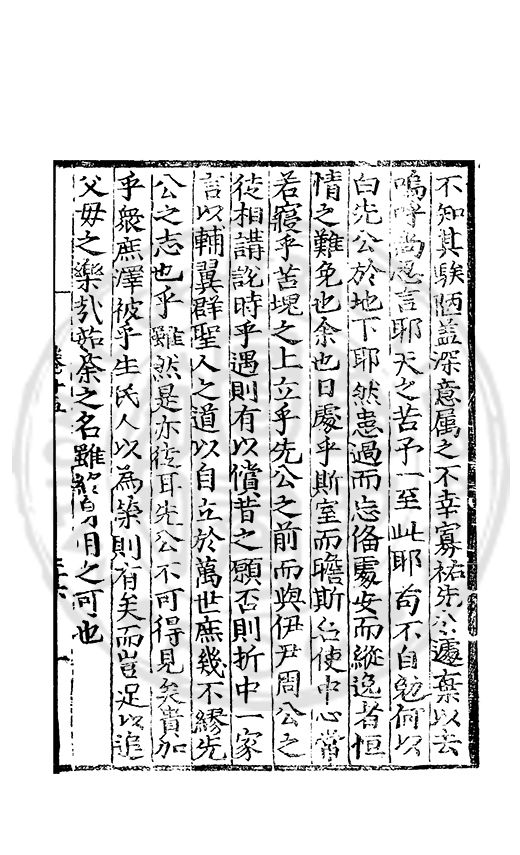 不知其騃陋盖深意属之不幸寡祐先公遽棄以去
嗚呼尚忍言耶天之苦予一至此耶苟不自勉何以
白先公於地下耶然患過而忘俻處安而縱逸者恒
情之難免也余也日處乎斯室而瞻斯名使中心常
若寢乎苫塊之上立乎先公之前而與伊尹周公之
徒相講説時乎遇則有以償昔之願否則折中一家
言以輔翼群聖人之道以自立於萬世庶幾不繆先
公之志也乎雖然是亦從耳先公不可得見矣貴加
乎衆庶澤被乎生民人以為榮則有矣而豈足以追
父母之樂哉始斋之名雖終身用之可也
卷十五
二十六